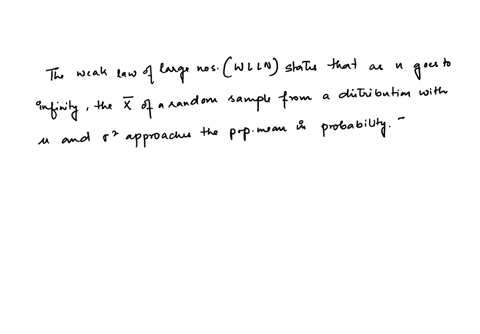 The weak law of large nos. (WLLN) states that as n goes to
infinity, the X̅ of a random sample from a distribution with
μ and σ² approaches the pop. mean in probability.